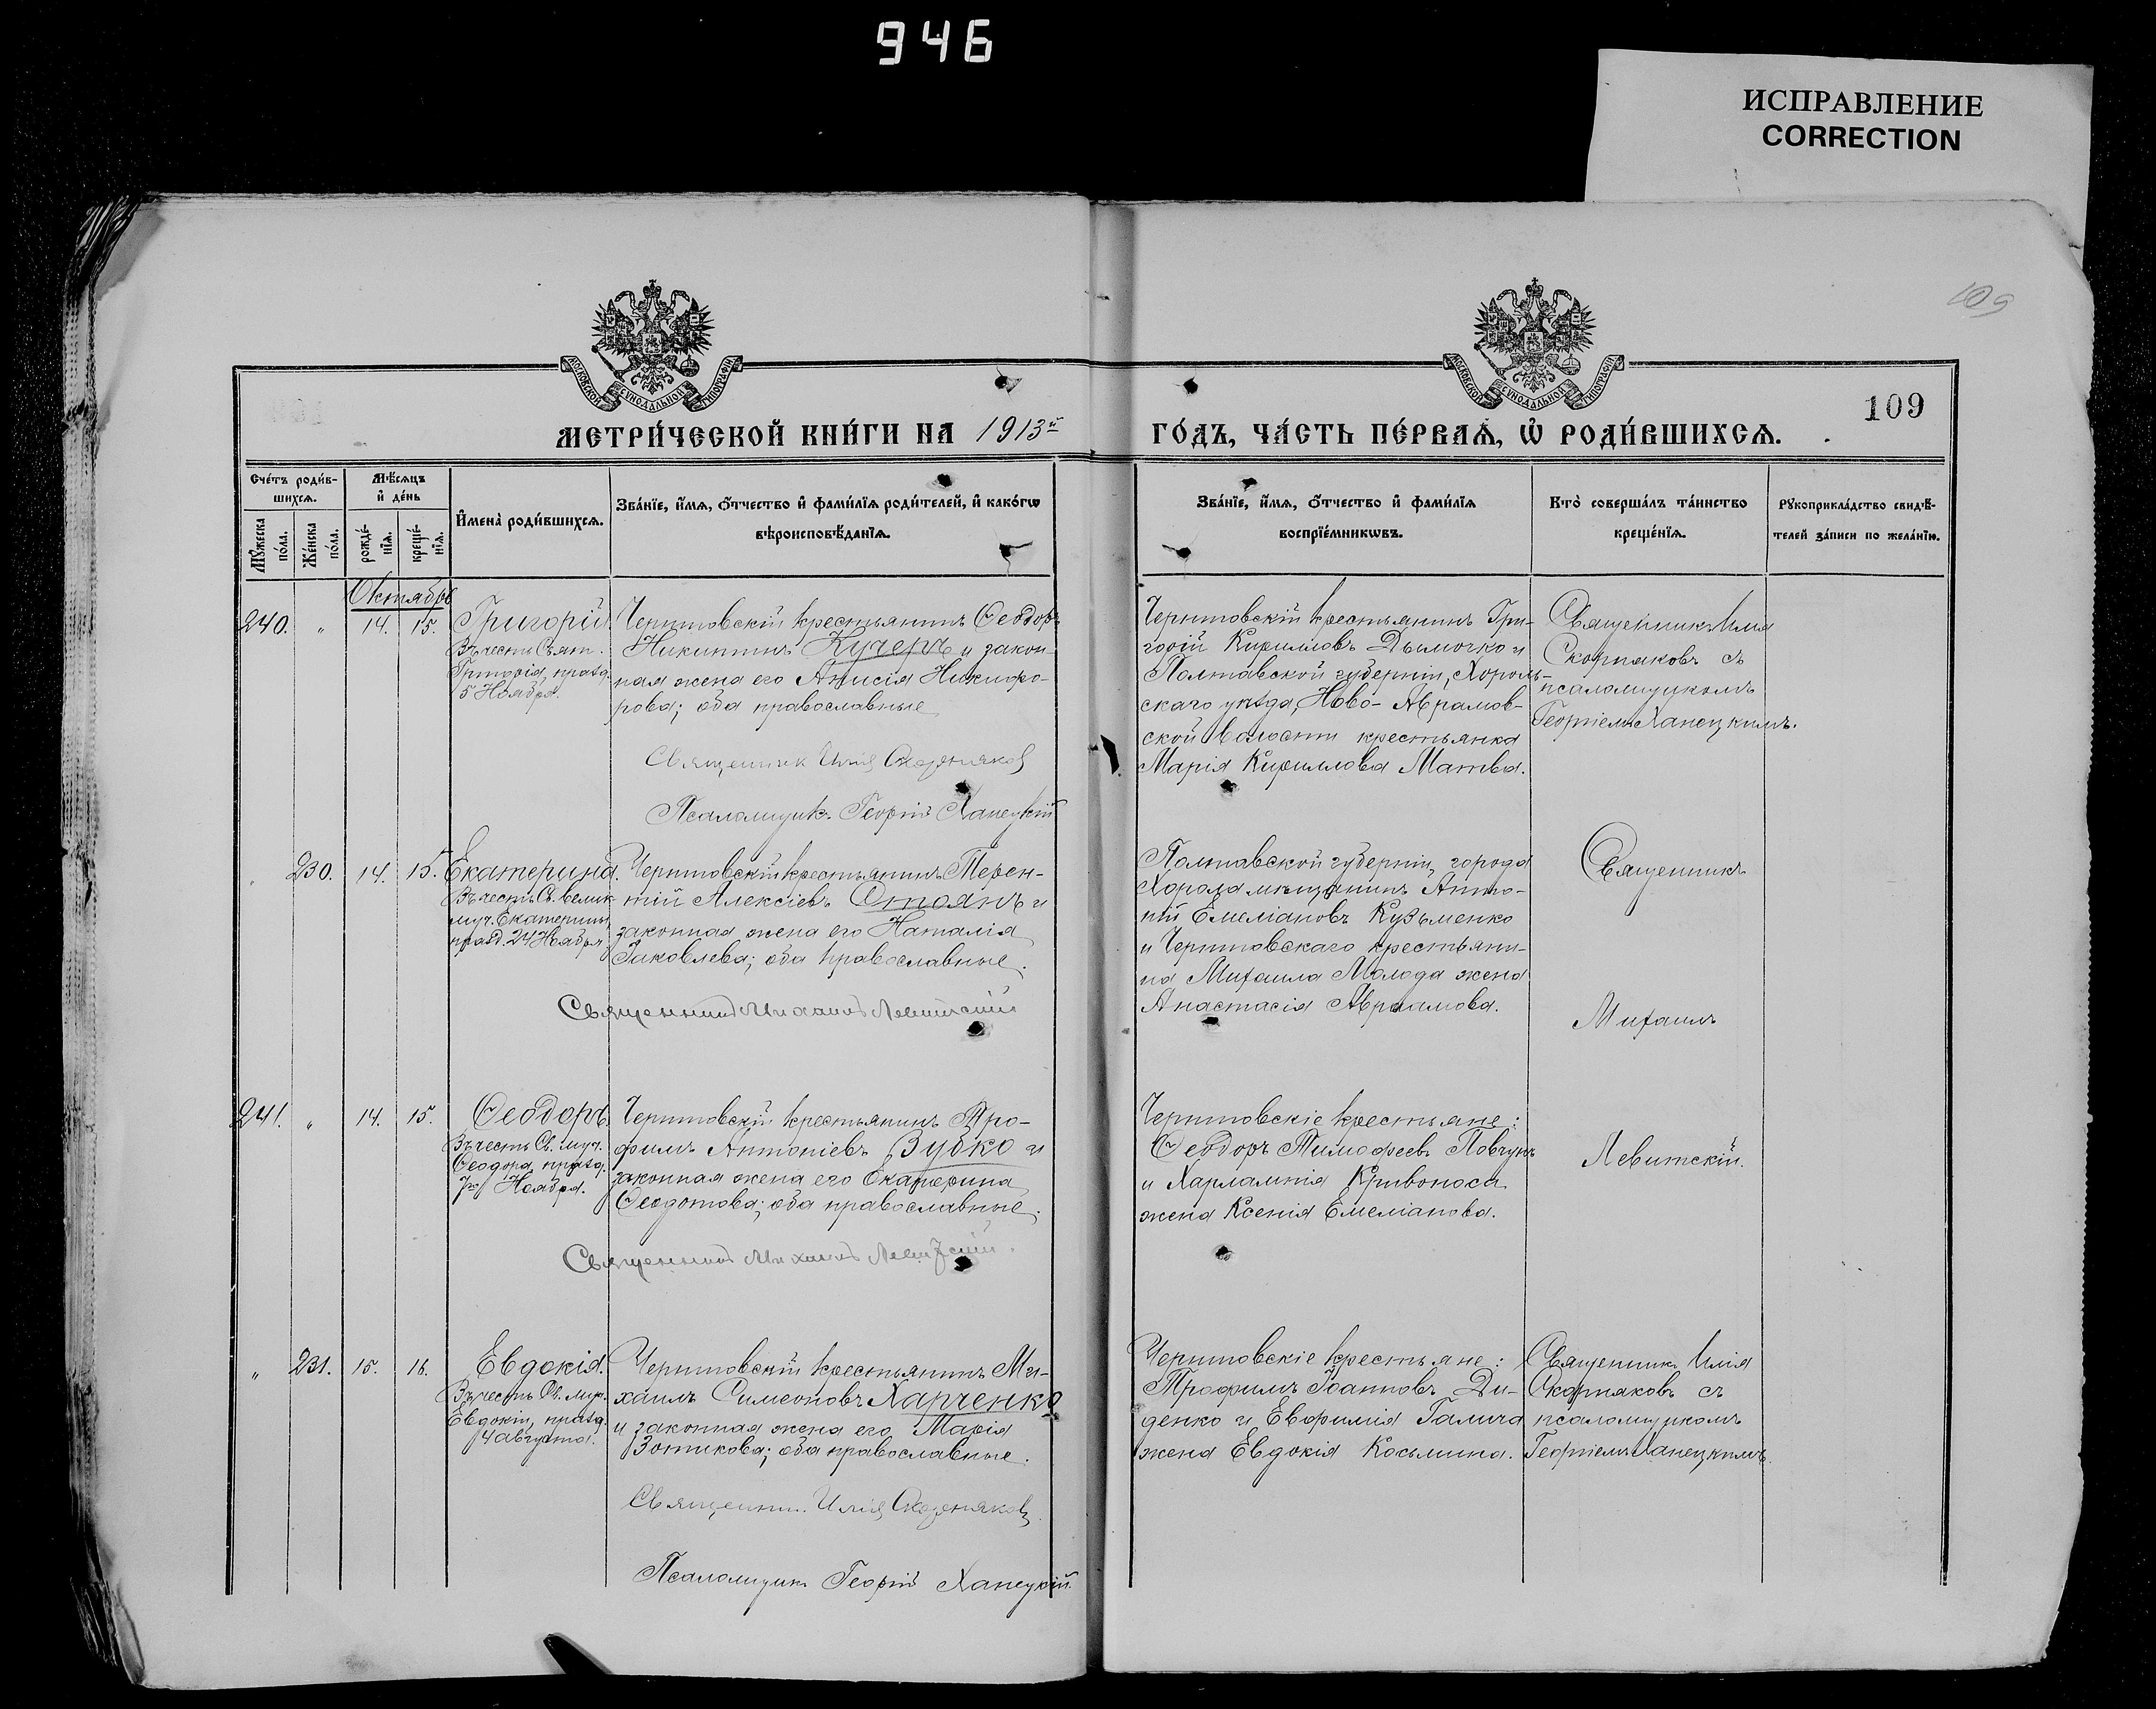 946
ИСПРАВЛЕНИЕ
CORRECTION
109
109
МОСКОВСКОЙ СѴНОДАЛЬНОЙ ТИПОГРАФІИ
МОСКОВСКОЙ СѴНОДАЛЬНОЙ ТИПОГРАФІИ
МЕТРИ́ЧЕСКОЙ КНИ́ГИ НА 1913й
ГО́ДЪ, ЧА́СТЬ ПЕ́РВАѦ, Ѽ РОДИ́ВШИХСѦ.
Сче́тъ роди́в-
шихсѧ.
Мѣ́сяцъ
и҆ де́нь
Мꙋ́жеска
по́ла.
Же́нска
по́ла.
рожде́-
нїѧ.
креще́-
нїѧ.
И҆мена̀ роди́вшихсѧ.
Зва́нїе, и҆́мѧ, ѻ҆́тчество и҆ фами́лїѧ роди́телей, и҆ како́гѡ
вѣроисповѣ́данїѧ.
Зва́нїе, и҆́мѧ, ѻ҆́тчество и҆ фами́лїѧ
воспрїе́мникѡвъ.
Кто̀ соверша́лъ та́инство
креще́нїѧ.
Рꙋкоприкла́дство свидѣ́-
телей за́писи по жела́нїю.
Октябрь
240. „ 14. 15.
Григорій
Въ честь Свят.
Григорія, празд.
5 Ноября.
Крестьянинъ Ѳеодоръ
Никитинъ Кучеръ и закон-
ная жена его Анисія Никифо-
рова; оба православные
Священник Илія Скорняков
Псаломщик Георгій Ханецкій
крестьянинъ Гри-
горій Кирилловъ Дымочко и
Полтавской губерніи, Хороль-
скаго уѣзда, Ново-Аврамов-
ской волости крестьянка
Марія Кириллова Матва.
Священникъ Илія
Скорняковъ съ
псаломщикомъ
Георгіемъ Ханецкимъ.
„ 230. 14. 15.
Екатерина.
Въ честь Св. велик.
муч. Екатерины,
празд. 24 Ноября.
крестьянинъ Терен-
тій Алексіевъ Стоянъ и
законная жена его Наталія
Іаковлева; оба православные.
Священникъ Михаилъ Левитскій
Полтавской губерніи, города
Хорола мѣщанинъ Анто-
ній Емеліановъ Кузьменко
и крестьяни-
на Михаила Молода жена
Анастасія Авраамова.
Священникъ
Михаилъ
Левитскій.
241. „ 14. 15.
Ѳеодоръ.
Въ честь Св. муч.
Ѳеодора, празд.
7го Ноября.
крестьянинъ Тро-
фимъ Антоніевъ Зубко и
законная жена его Екатерина
Ѳеодотова; оба православные.
Священникъ Михаилъ Левитскій.
крестьяне:
Ѳеодоръ Тимофеевъ Ловчунъ
и Харлампія Кривоноса
жена Ксенія Емеліанова.
„ 231. 15. 16.
Евдокія.
Въ честь Св. муч.
Евдокіи, празд.
4 августа.
крестьянинъ Ми-
хаилъ Симеоновъ Харченко
и законная жена его Марія
Зотикова; оба православные.
Священник Илія Скорняковъ
Псаломщик Георгій Ханецкій.
крестьяне:
Трофимъ Іоанновъ Ди-
денко и Евфимія Галича
жена Евдокія Косьмина.
Священник Илія
Скорняковъ съ
псаломщикомъ
Георгіемъ Ханецкимъ.